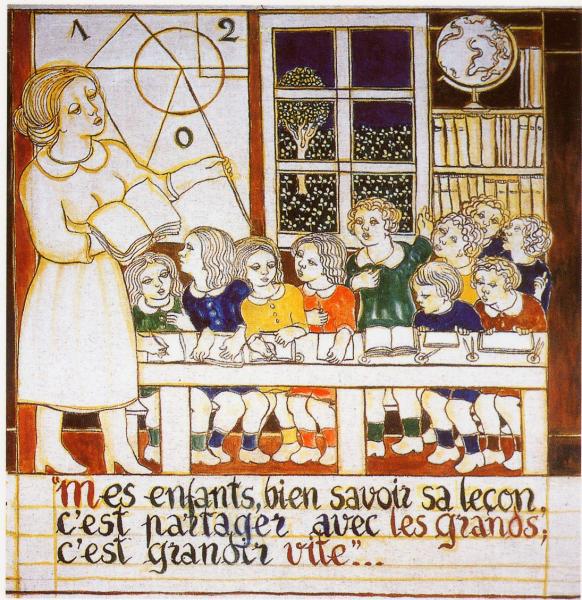 1 2
0
"Mes enfants, bien savoir sa leçon,
c'est partager avec les grands;
c'est grandir vite"...